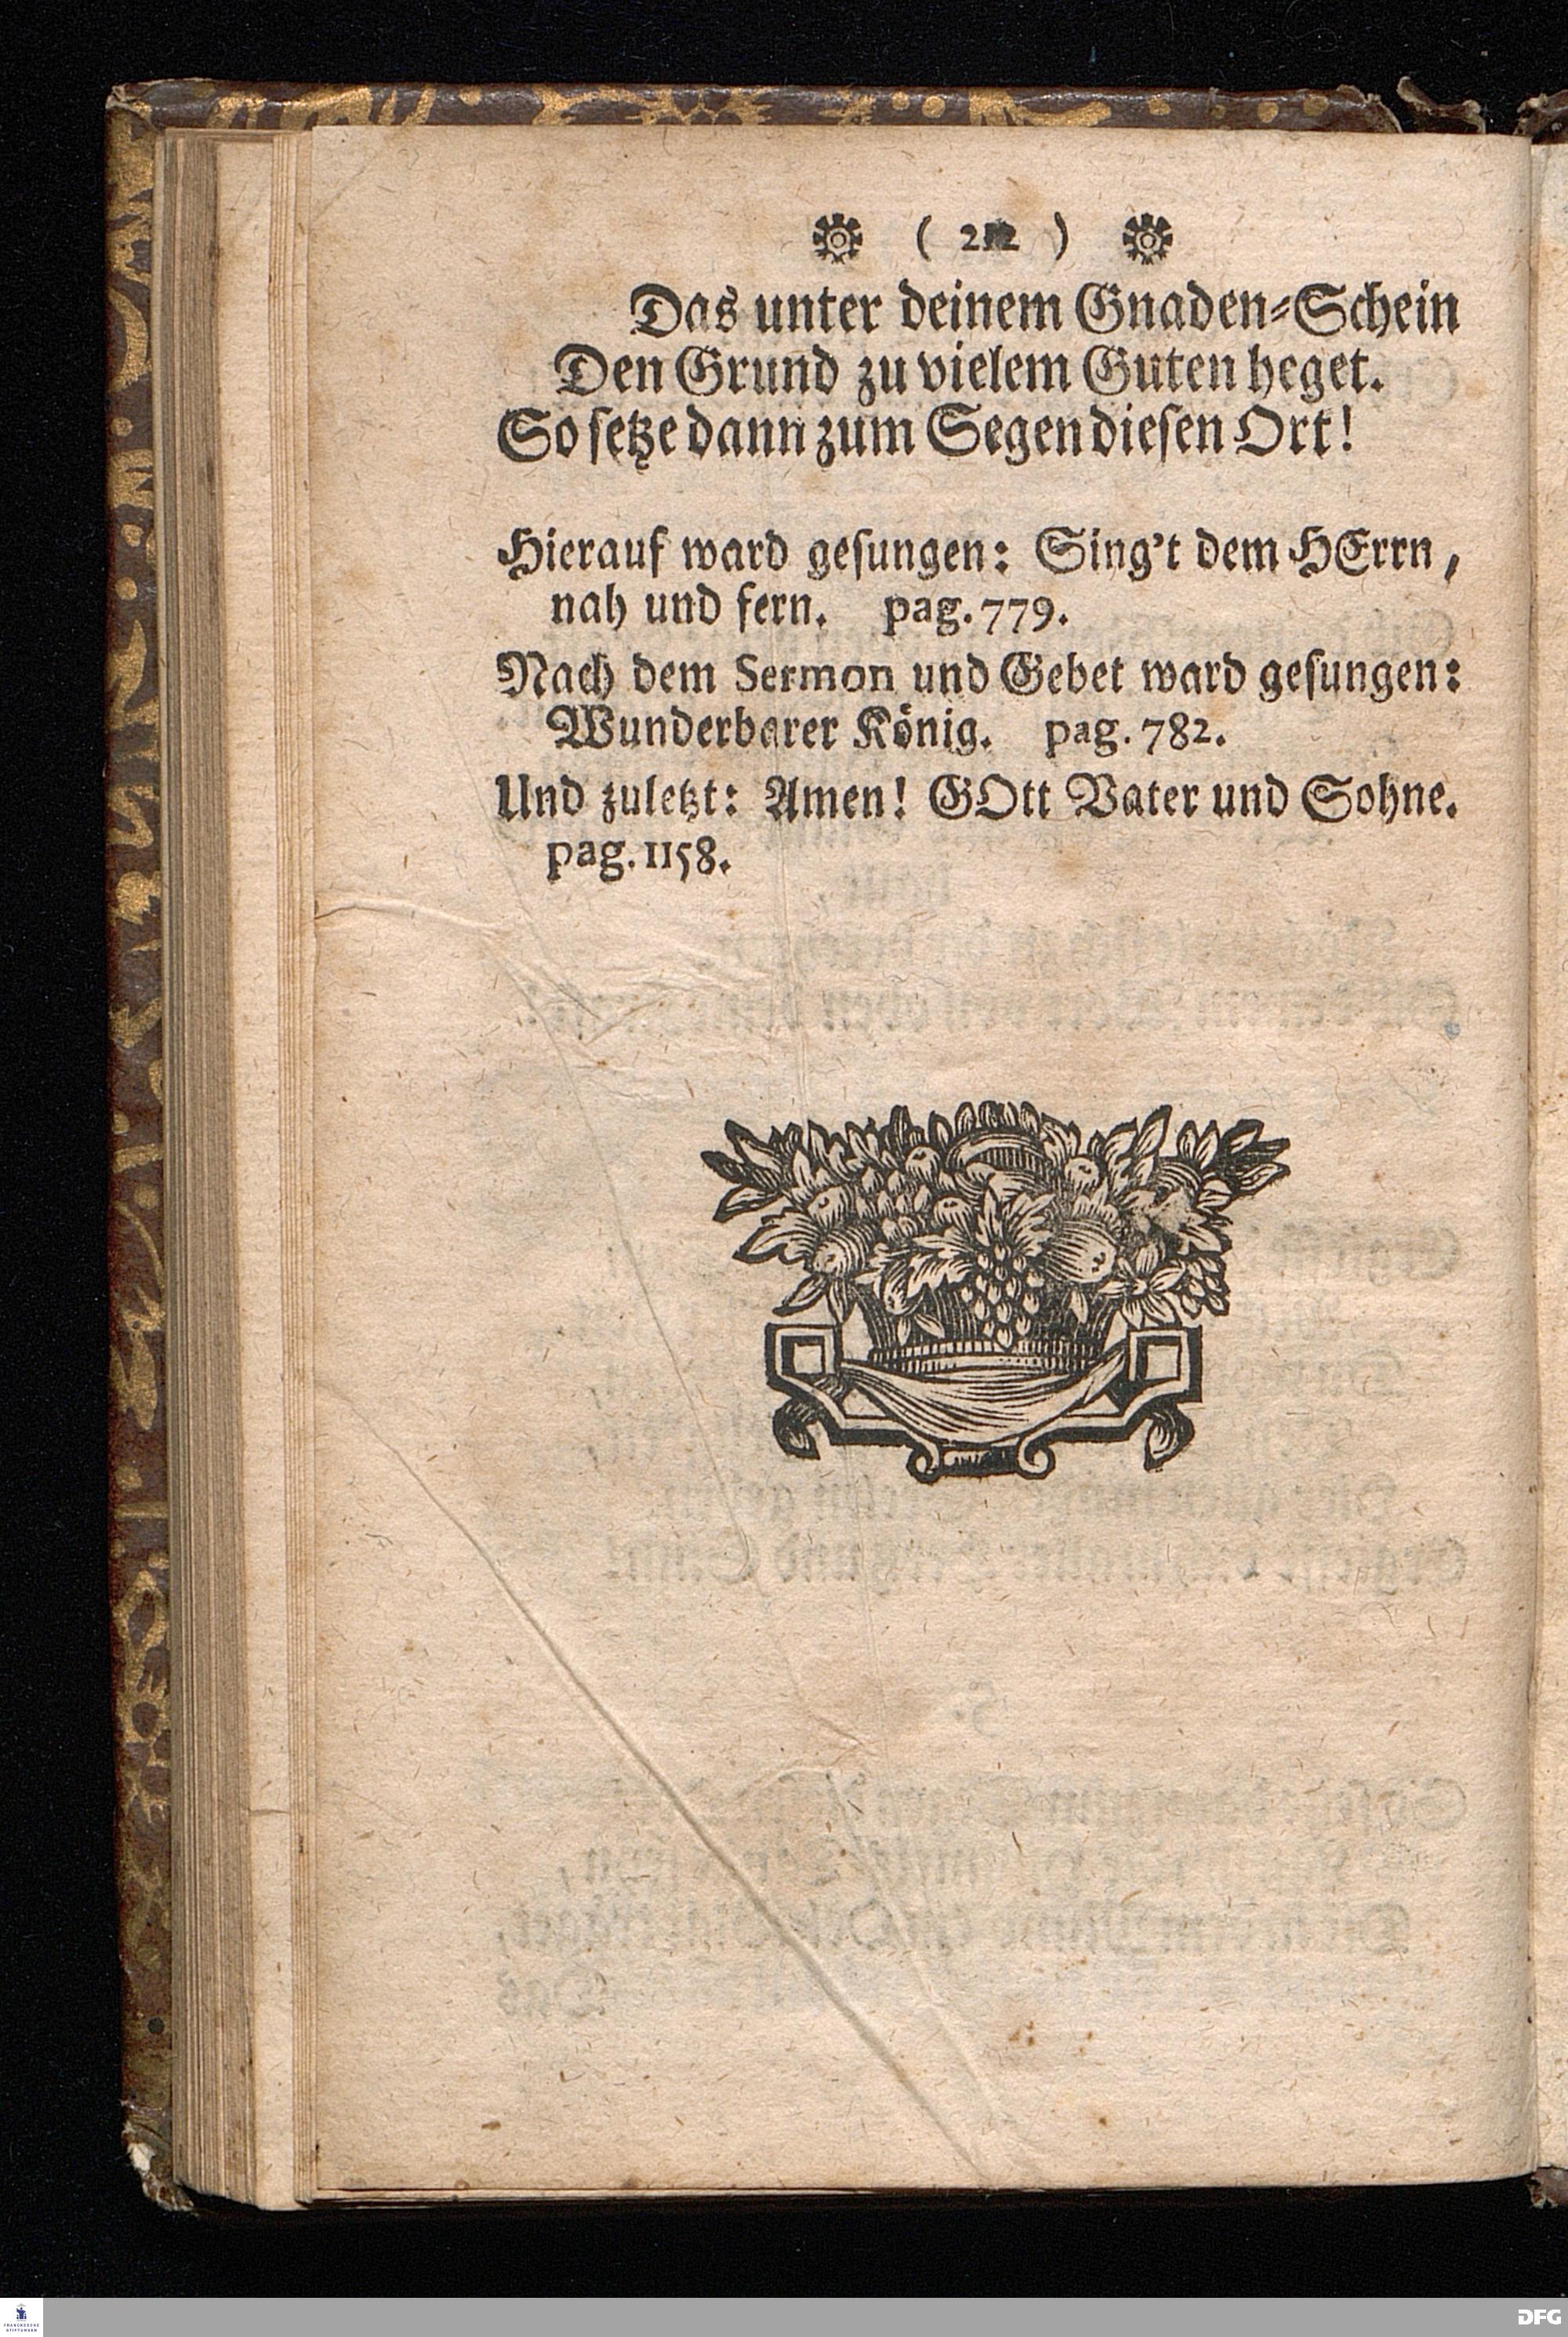 Das unter deinem Gnaden-Schein
Den Grund zu vielem Guten heget.
So setze dann zum Segen diesen Ort!
Hierauf ward gesungen: Sing't dem HErrn,
nah und fern. pag. 779.
Nach dem Sermon und Gebet ward gesungen:
Wunderbarer König. pag. 782.
Und zuletzt: Amen! GOtt Vater und Sohne.
pag. 1158.
FRANCKESCHE
STIFTUNGEN
DFG